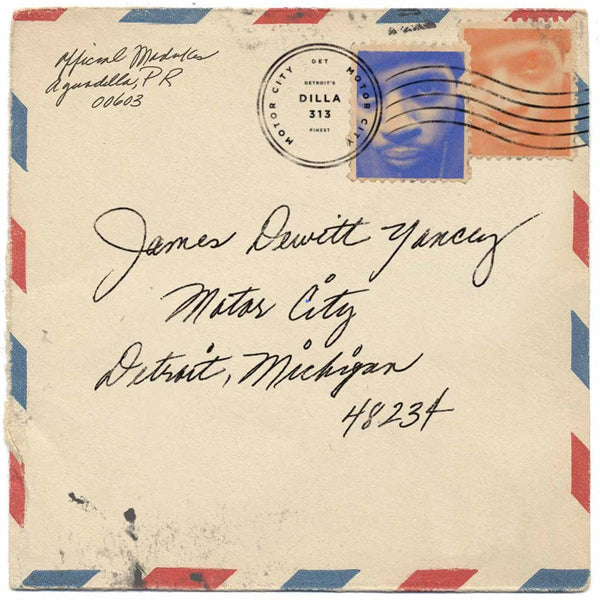 Official Madukes
Aguadilla, PR
00603
MOTOR CITY
DET
MOTOR CITY
DETROIT'S
DILLA
313
FINEST
James Dewitt Yancey
Motor City
Detroit, Michigan
48234